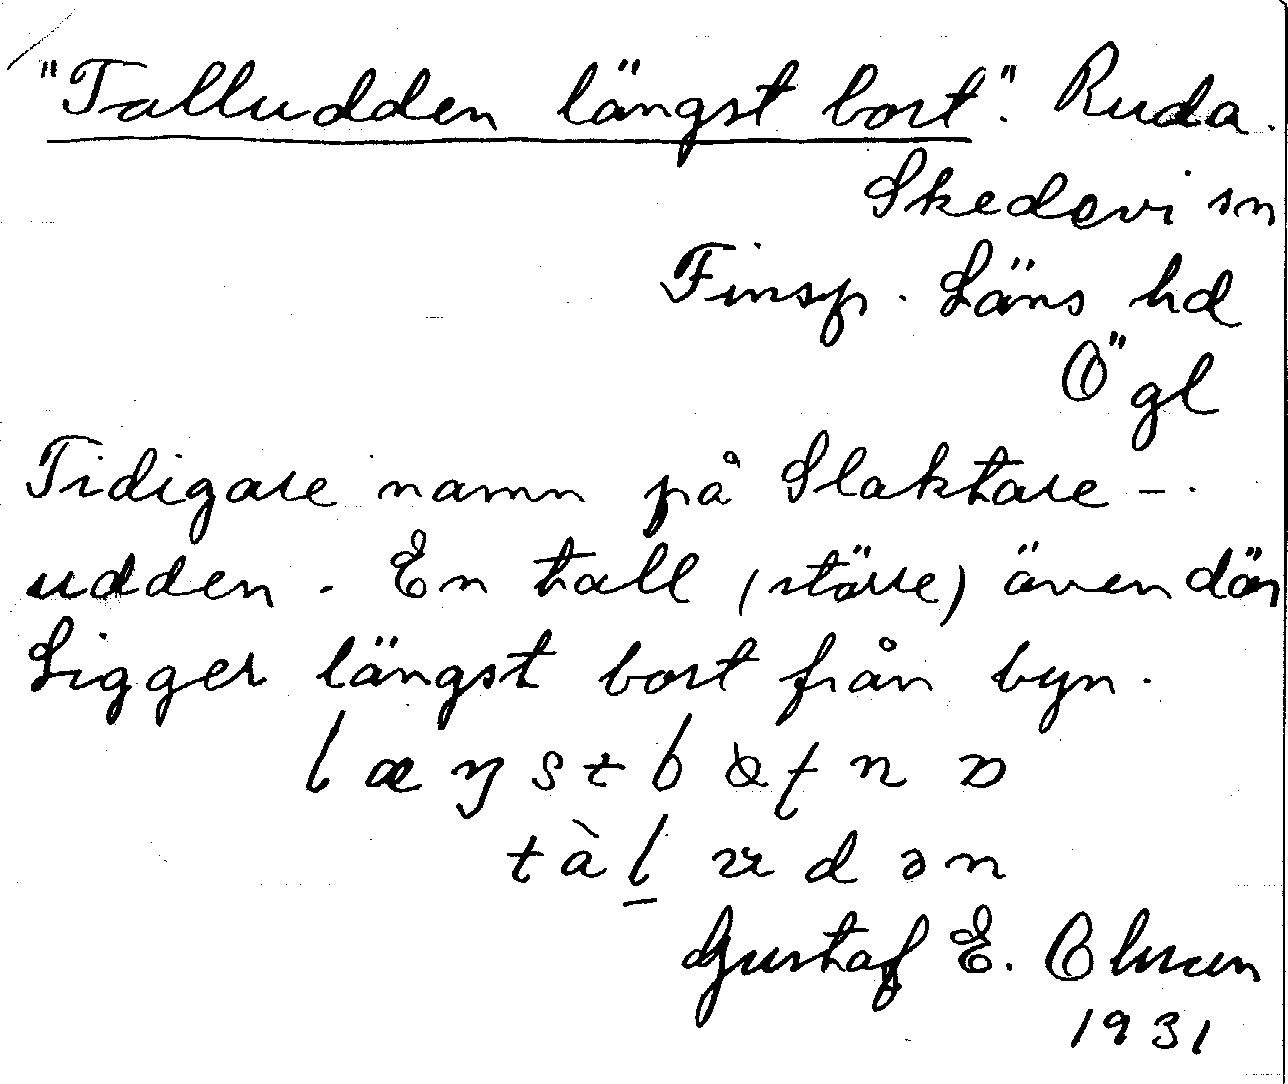 "Talludden längst bort". Ruda.
Skedevi sn
Finsp. Läns hd
Ögl
Tidigare namn på Slaktare-
udden. En tall (större) även där
Ligger längst bort från byn.
tàl̲ udən
Gustaf E. Olsson
1931